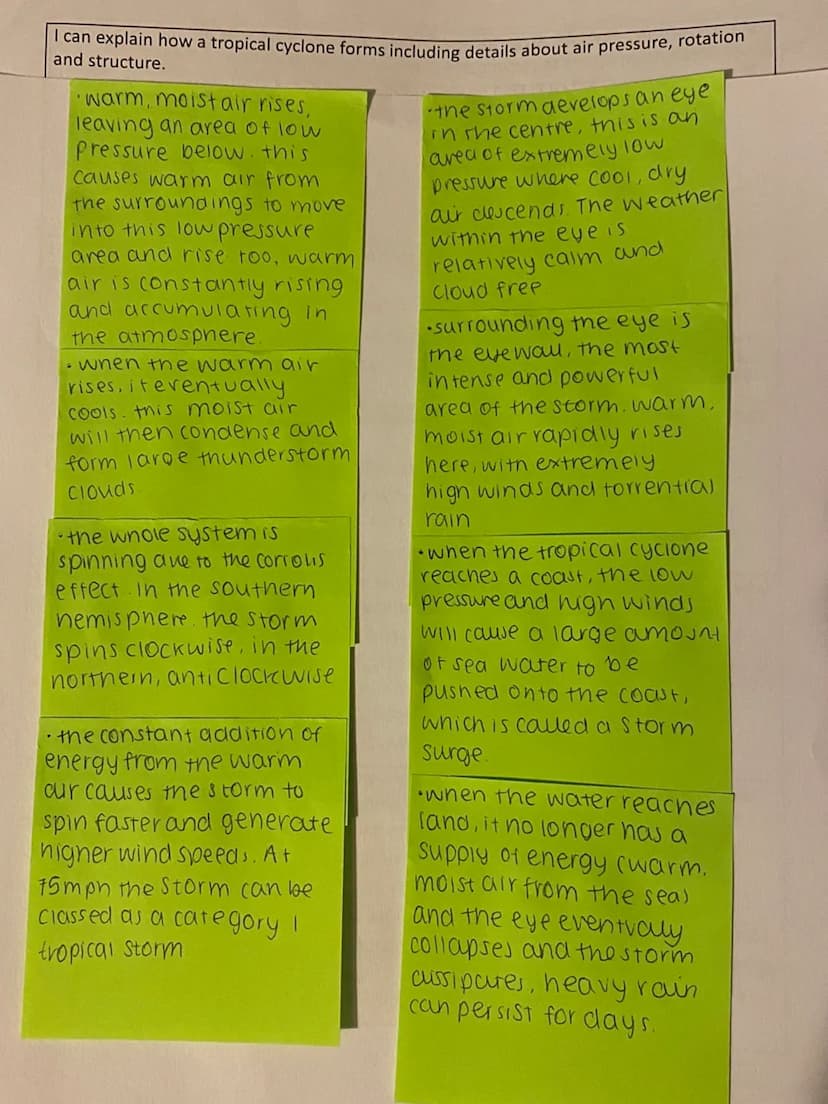 I can explain how a tropical cyclone forms including details about air pressure, rotation
and structure.
• warm, moist air rises,
leaving an area of low
pressure below. this
causes warm air from
the surroundings to move
into this low pressure
area and rise too, warm
air is constantly rising
and accumulating in
the atmosphere.
• when the warm air
rises, it eventually
cools. this moist air
will then condense and
form large thunderstorm
clouds
• the whole system is
spinning due to the corriolis
effect. in the southern
hemisphere. the storm
spins clockwise, in the
northern, anticlockwise
• the constant addition of
energy from the warm
air causes the storm to
spin faster and generate
higher wind speeds. At
75mph the storm can be
classed as a category 1
tropical storm
• the storm develops an eye
in the centre, this is an
area of extremely low
pressure where cool, dry
air descends. The weather
within the eye is
relatively calm and
cloud free
• surrounding the eye is
the eyewall, the most
intense and powerful
area of the storm. warm,
moist air rapidly rises
here, with extremely
high winds and torrential
rain
• when the tropical cyclone
reaches a coast, the low
pressure and high winds
will cause a large amount
of sea water to be
pushed onto the coast,
which is called a storm
surge.
• when the water reaches
land, it no longer has a
supply of energy (warm,
moist air from the sea)
and the eye eventually
collapses and the storm
dissipates, heavy rain
can persist for days.